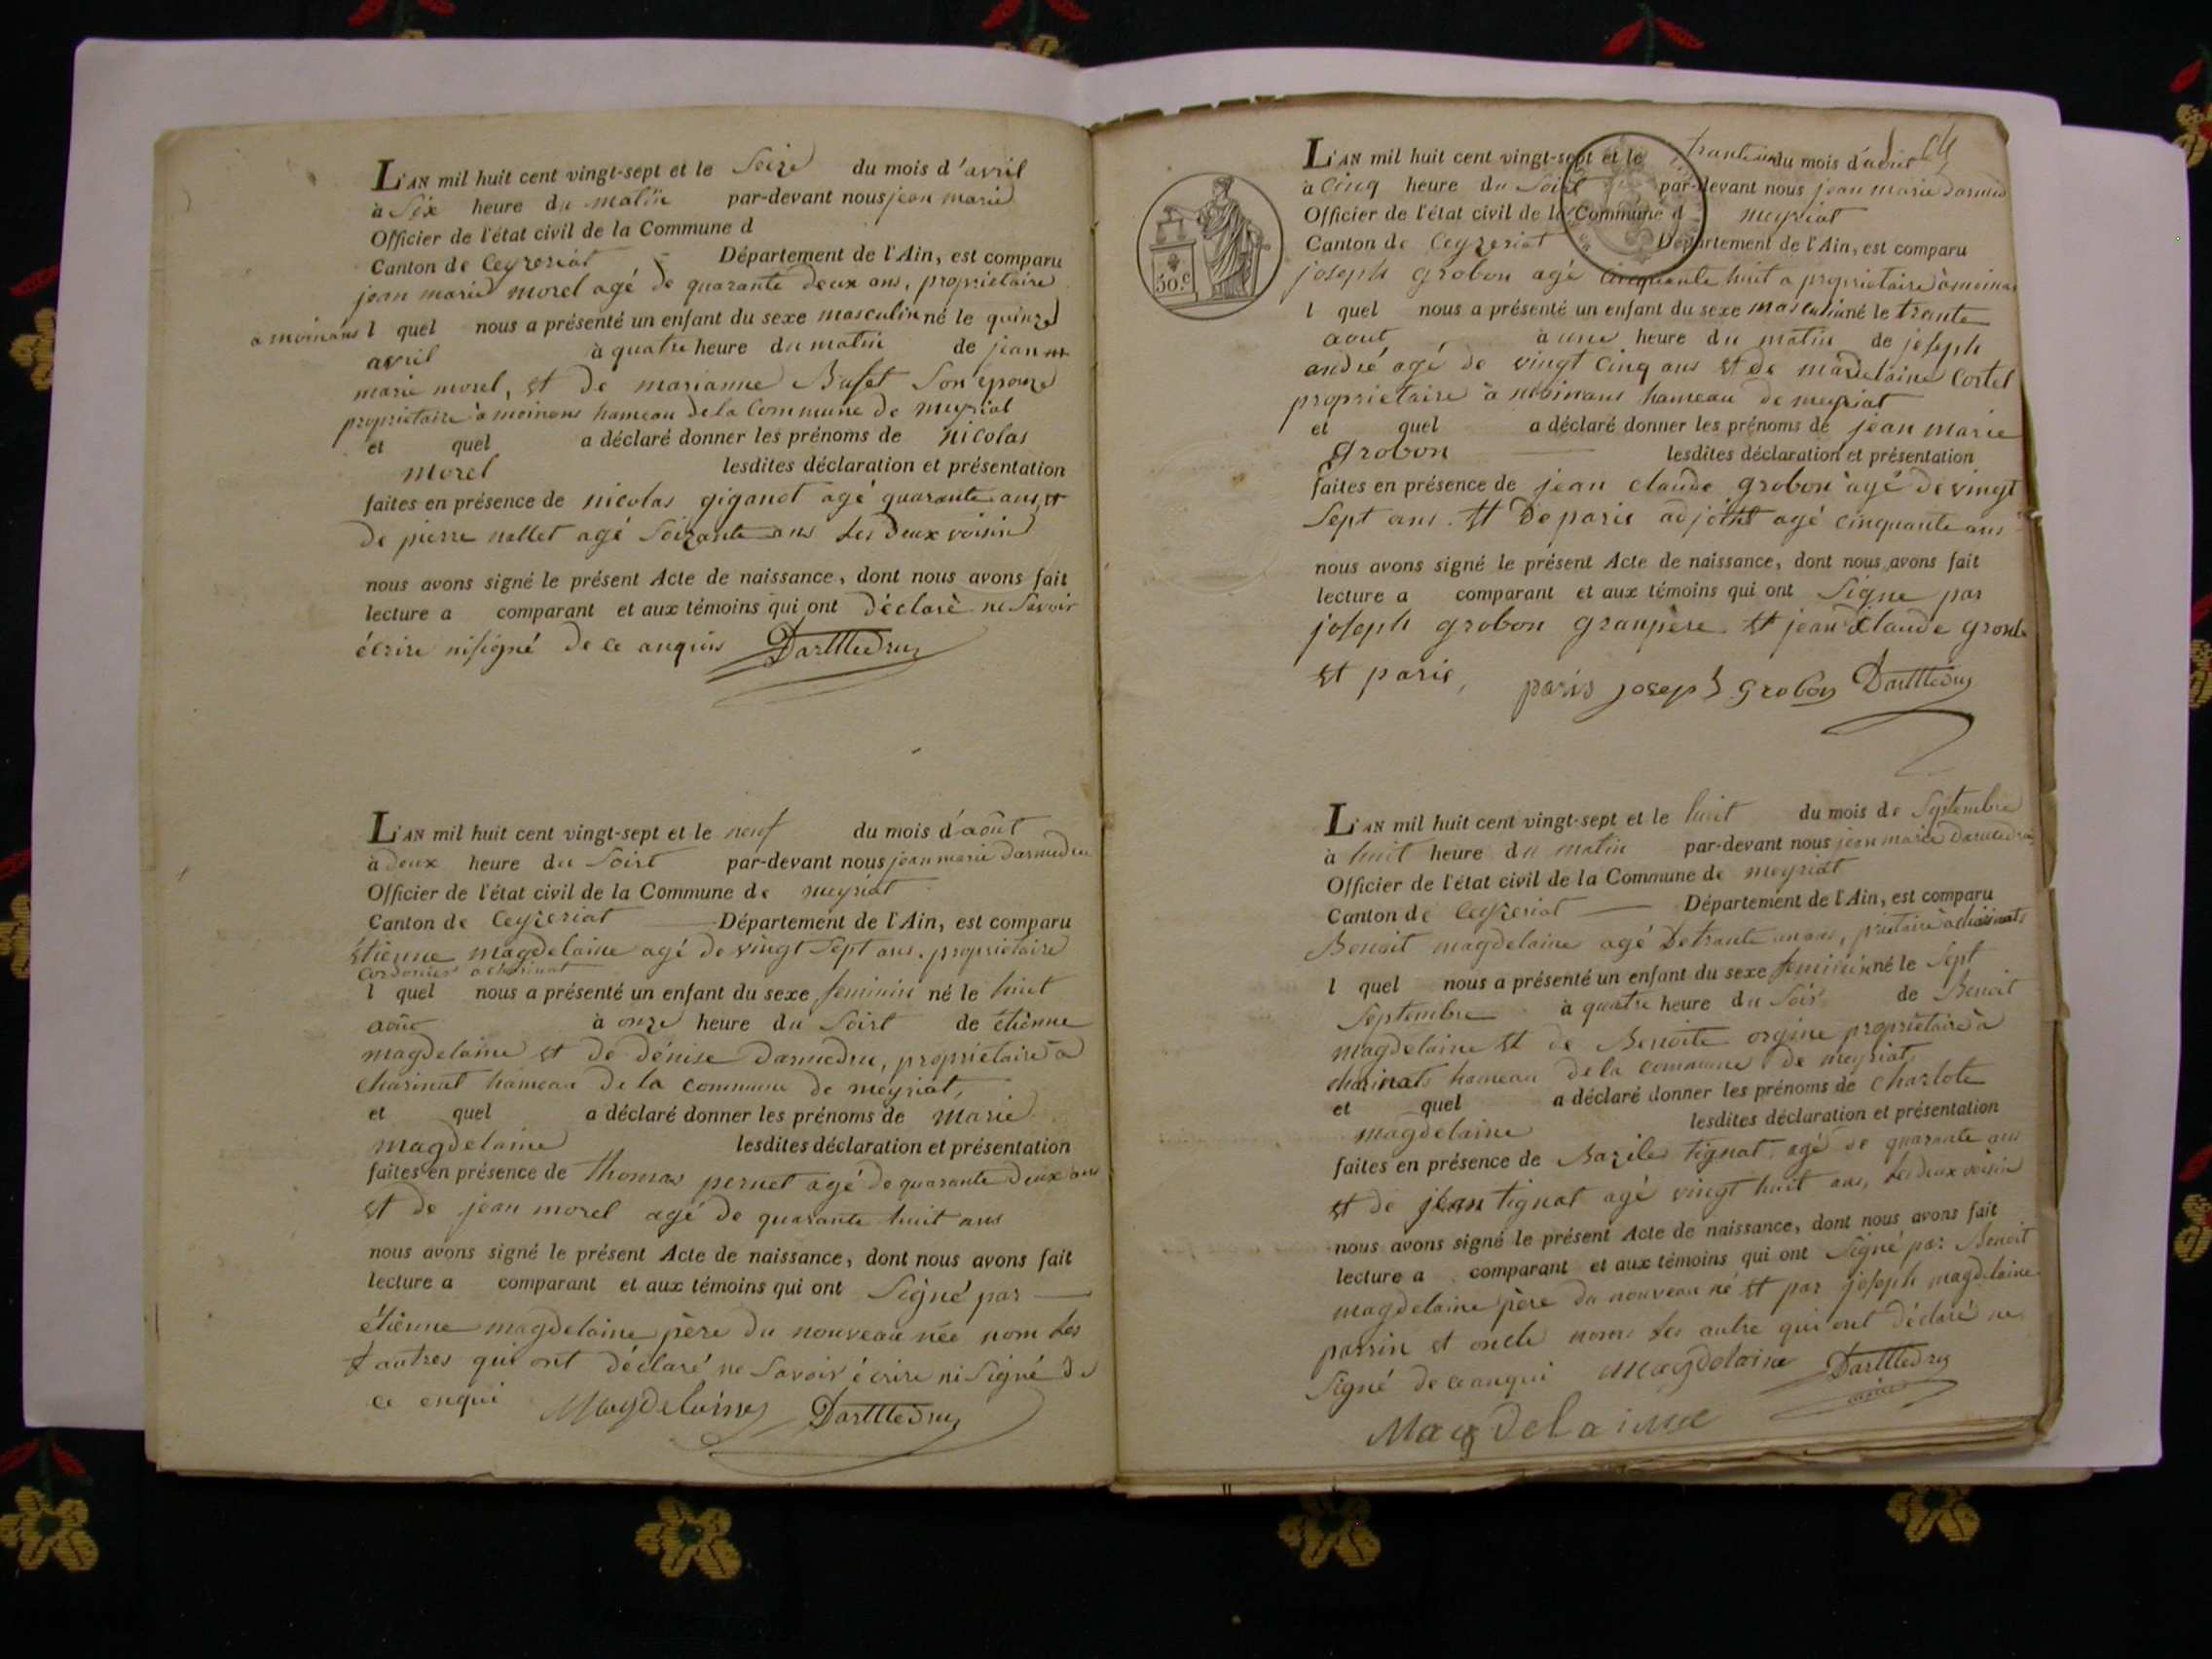 L'AN mil huit cent vingt-sept et le Seize du mois d'avril
à Six heure du matin par-devant nous jean marie
Officier de l'état civil de la Commune d
Canton de Ceyzeriat Département de l'Ain, est comparu
jean marie morel agé de quarante deux ans, proprietaire
a moinans l quel nous a présenté un enfant du sexe masculin né le quinze
avril à quatre heure du matin de jean
marie morel, et de marianne Bufet Son epouze
proprietaire a moinans hameau de la Commune de meyriat
et quel a déclaré donner les prénoms de nicolas
morel lesdites déclaration et présentation
faites en présence de nicolas giganot agé quarante ans et
de pierre nallet agé Soizante ans les deux voisin
nous avons signé le présent Acte de naissance, dont nous avons fait
lecture a comparant et aux témoins qui ont déclaré ne Savoir
écrire ni signé de ce anquis Darmedru
L'AN mil huit cent vingt-sept et le neuf du mois d'août
à deux heure du Soirt par-devant nous jean marie darmedru
Officier de l'état civil de la Commune de meyriat
Canton de Ceyzeriat Département de l'Ain, est comparu
étienne magdelaine agé de vingt Sept ans, proprietaire
Cordonier a charinat
l quel nous a présenté un enfant du sexe feminin né le huit
août à onze heure du Soirt de étienne
magdelaine et de dénise darmedru, proprietaire a
charinat hameau de la commune de meyriat,
et quel a déclaré donner les prénoms de marie
magdelaine lesdites déclaration et présentation
faites en présence de thomas pernet agé de quarante deux ans
et de jean morel agé de quarante huit ans
nous avons signé le présent Acte de naissance, dont nous avons fait
lecture a comparant et aux témoins qui ont Signé par
étienne magdelaine père du nouveau née nom les
autres qui ont déclaré ne Savoir écrire ni Signé de
ce enqui Magdelaine Darmedru
L'AN mil huit cent vingt-sept et le du mois d'aout
à Cinq heure du Soirt par-devant nous jean marie darmed
Officier de l'état civil de la Commune d meyriat
Canton de Ceyzeriat Département de l'Ain, est comparu
joseph grobon agé cinquante huit a proprietaire a moinas
50.c
l quel nous a présenté un enfant du sexe masculin né le trante
aout à une heure du matin de joseph
andré agé de vingt cinq ans et de madelaine Cortel
proprietaire à moinans hameau de meyriat
et quel a déclaré donner les prénoms de jean marie
grobon lesdites déclaration et présentation
faites en présence de jean claude grobon agé de vingt
Sept ans. et De paris adjoint agé cinquante ans
nous avons signé le présent Acte de naissance, dont nous avons fait
lecture a comparant et aux témoins qui ont Signe par
joseph grobon granpère et jean Claude
et paris, paris joseph grobon Darmedru
L'AN mil huit cent vingt-sept et le huit du mois de Septembre
à huit heure du matin par-devant nous jean marie darmedru
Officier de l'état civil de la Commune de meyriat
Canton de Ceyzeriat Département de l'Ain, est comparu
Benoit magdelaine agé De trante
l quel nous a présenté un enfant du sexe feminin né le Sept
Septembre à quatre heure du Soir de Benoit
magdelaine et de Benoite orgine proprietaire a
charinats hameau de la commune de meyriat,
et quel a déclaré donner les prénoms de charlote
magdelaine lesdites déclaration et présentation
faites en présence de Bazile tignat agé de quarante ans
et de jean tignat agé vingt huit ans, les deux voisin
nous avons signé le présent Acte de naissance, dont nous avons fait
lecture a comparant et aux témoins qui ont Signé par Benoit
magdelaine père du nouveau né et par joseph magdelaine
parrin et oncle nom les autre qui ont déclaré ne
Signé de ce anqui magdelaine Darmedru
Magdelaine